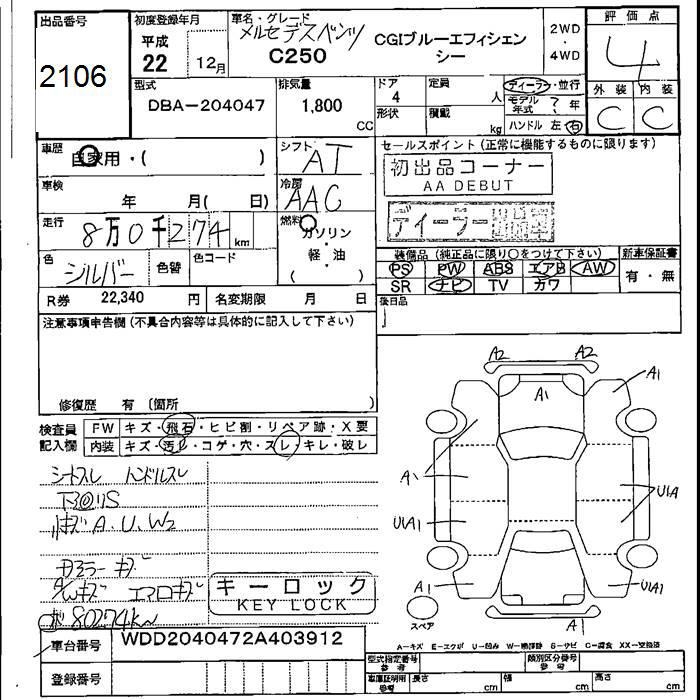 出品番号
2106
初度登録年月
平成
22 12月
車名・グレード
メルセデスベンツ
C250
CGIブルーエフィシェン
シー
2WD
・
4WD
評価点
4
外装 内装
C C
型式
DBA-204047
排気量
1,800
CC
ドア
4
定員
人
形状
積載
kg
ディーラー・並行
モデル年式 ? 年
ハンドル 左・右
車歴
自家用・( )
シフト
AT
車検
年 月( 日)
冷房
AAC
走行
8万0千274 km
燃料
ガソリン
・
軽・油
( )
色
シルバー
色替
色コード
R券 22,340 円
名変期限 月 日
セールスポイント(正常に機能するものに限ります)
初出品コーナー
AA DEBUT
ディーラー
装備品(純正品に限り○をつけて下さい)
PS PW ABS エアB AW
SR ナビ TV カワ
新車保証書
有・無
後日品
注意事項申告欄(不具合内容等は具体的に記入して下さい)
修復歴 有 (箇所 )
検査員
記入欄
FW キズ・飛石・ヒビ割・リペア跡・X要
内装 キズ・汚レ・コゲ・穴・スレ・キレ・破レ
シートスレ ハンドルスレ
A.U.W2
80274km
キーロック
KEY LOCK
車台番号
WDD2040472A403912
登録番号
A2 A2
A1
A1
A1
U1A
U1A1
A1
U1A1
A1
スペア
A-キズ E-エクボ U-凹み W-補修跡 S-サビ C-腐食 XX-交換済
型式指定番号
参考
類別区分番号
参考
車庫証明用
参考
長さ cm
幅 cm
高さ cm